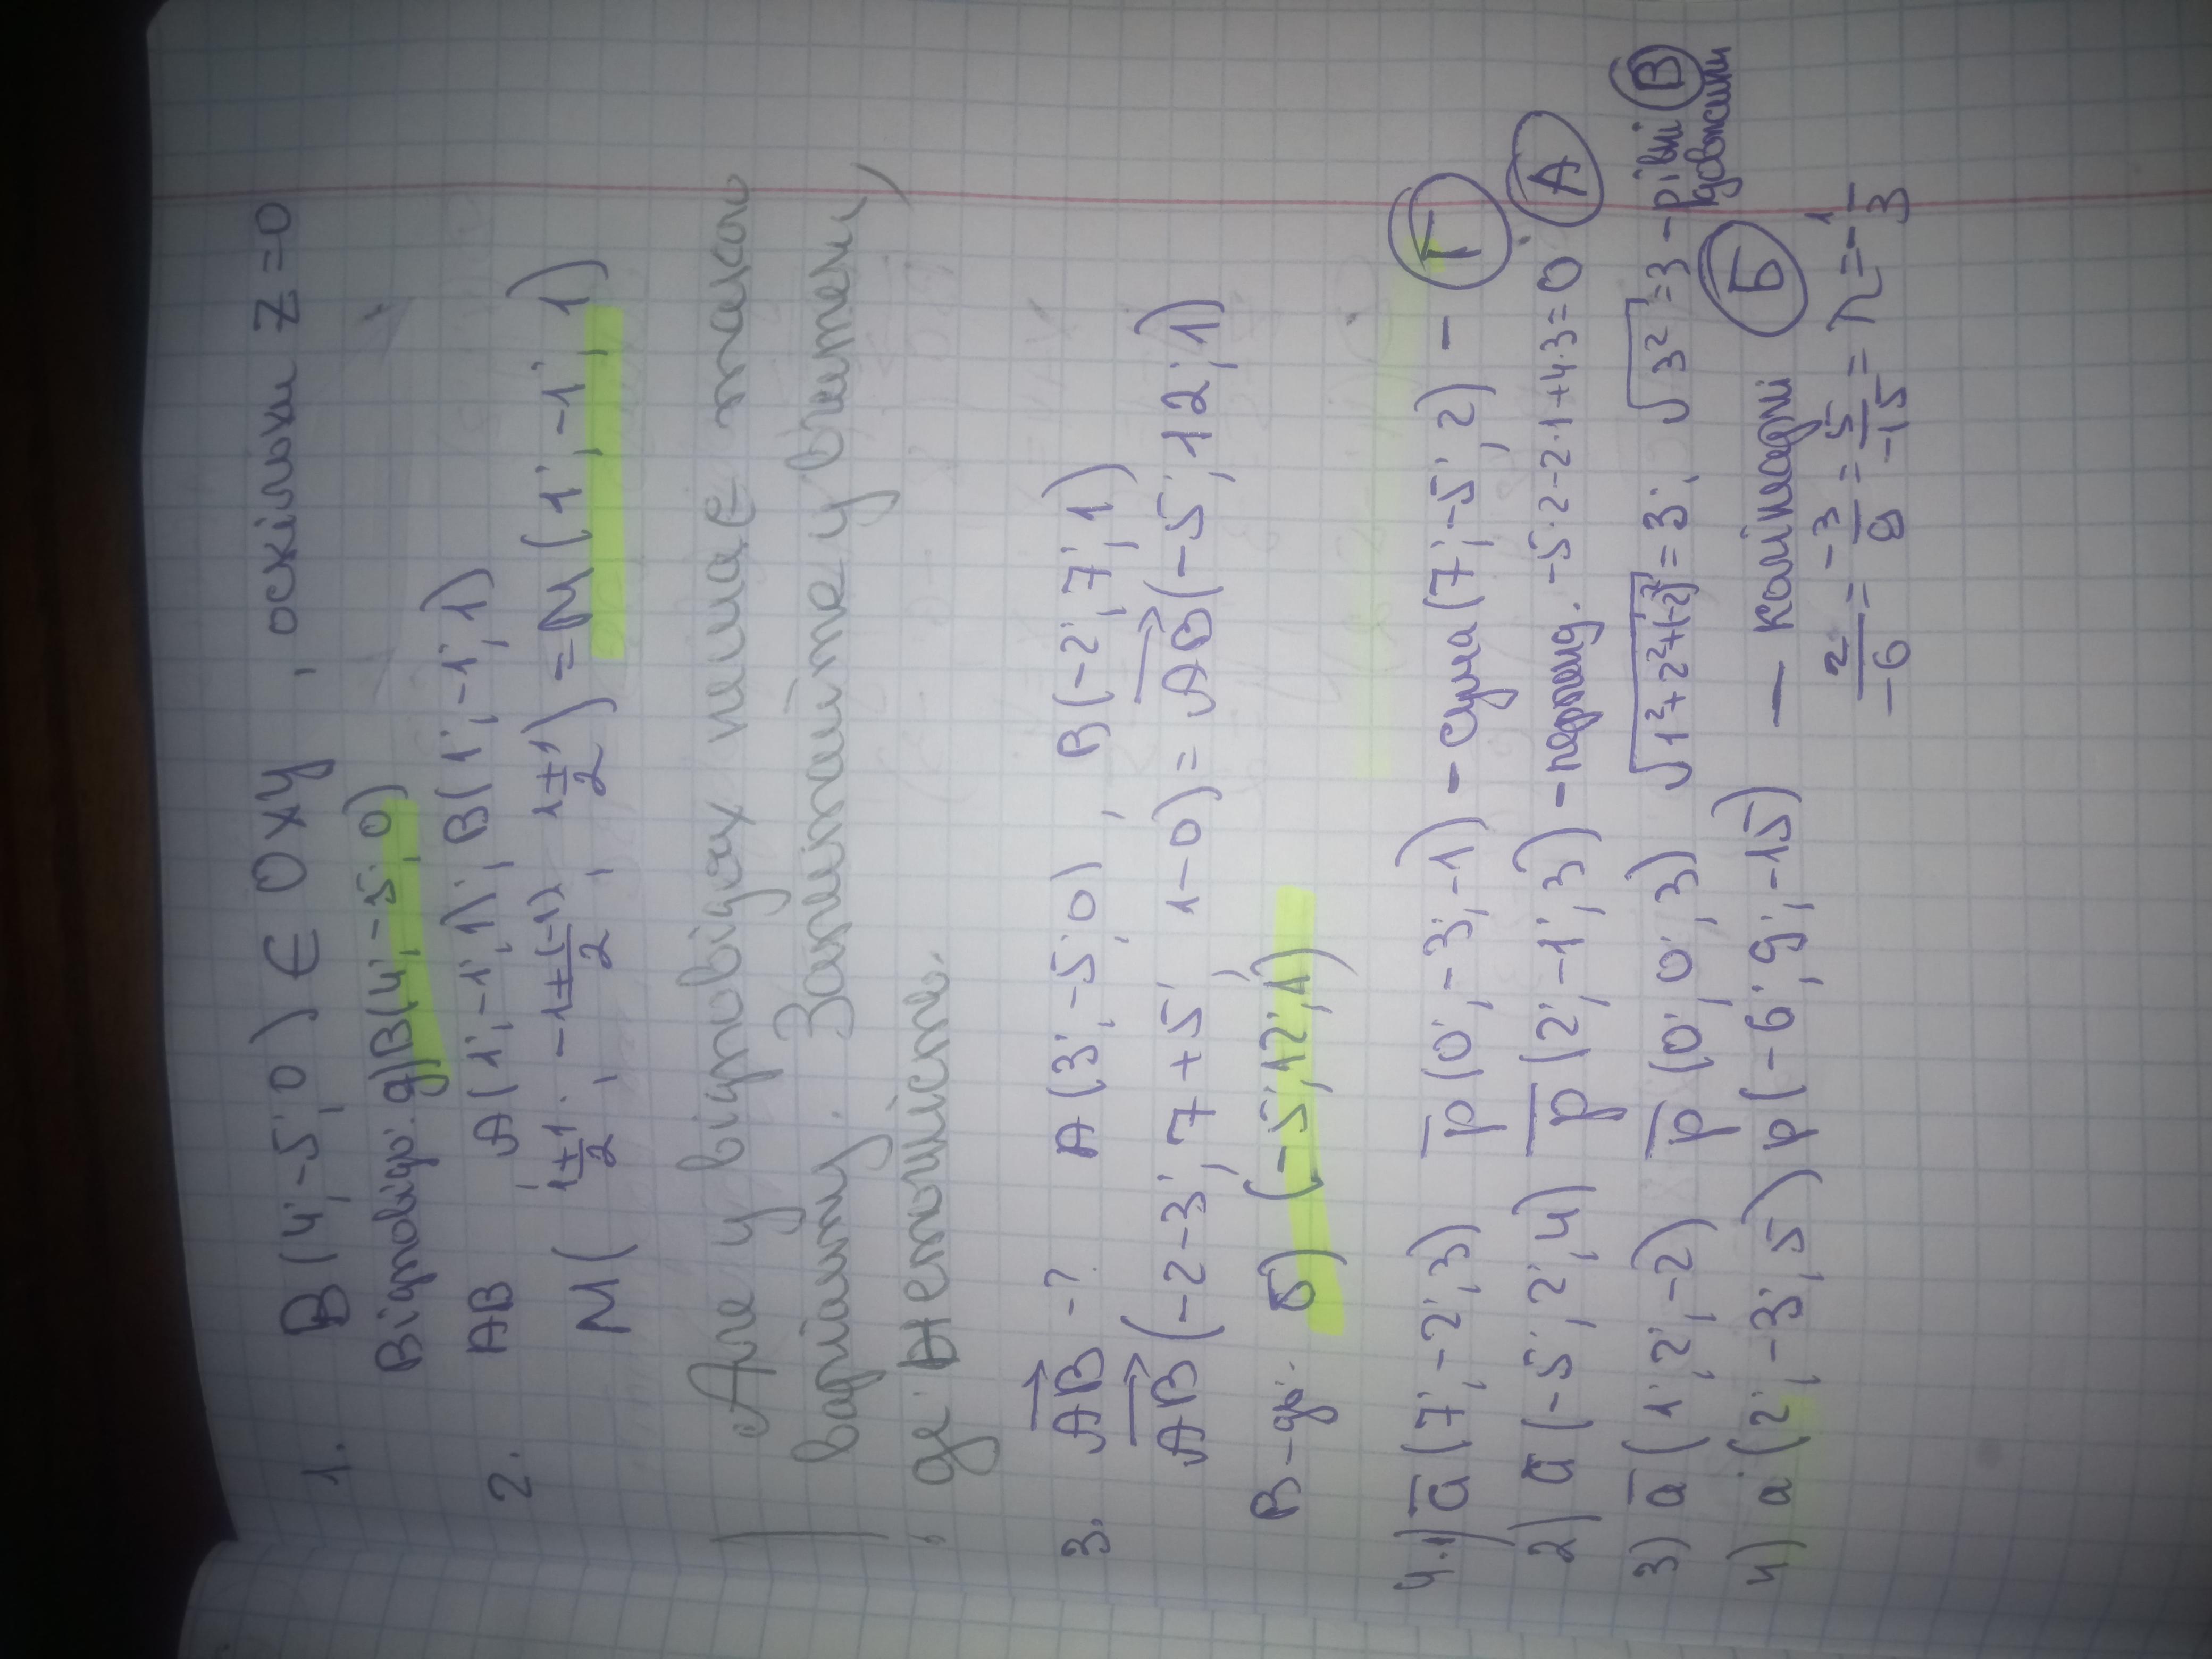 1. В (4; -5; 0) ∈ Oxy, оскільки z=0
Відповідь: д) В (4; -5; 0)
2. АВ А(1; -1; 1), В(1; -1; 1)
М( 1+1/2; -1+(-1)/2; 1+1/2) = М (1; -1; 1)
Але у відповідях немає такого
варіанту. Запитайте у вчителя,
де неточність.
3. АВ -? А (3; -5; 0), В(-2; 7; 1)
АВ (-2-3; 7+5; 1-0) = АВ (-5; 12; 1)
В-дь: б) (-5; 12; 1)
4.1) a (7; -2; 3) p (0; -3; -1) - сума (7; -5; 2) - Г
2) a (-5; 2; 4) p (2; -1; 3) - перпенд. -5·2-2·1+4·3=0 А
3) a (1; 2; -2) p (0; 0; 3) √1²+2²+(-2)² = 3; √3² = 3 - рівні В
довжини
4) a (2; -3; 5) p (-6; 9; -15) - колінеарні Б
2/-6 = -3/9 = 5/-15 = λ = -1/3